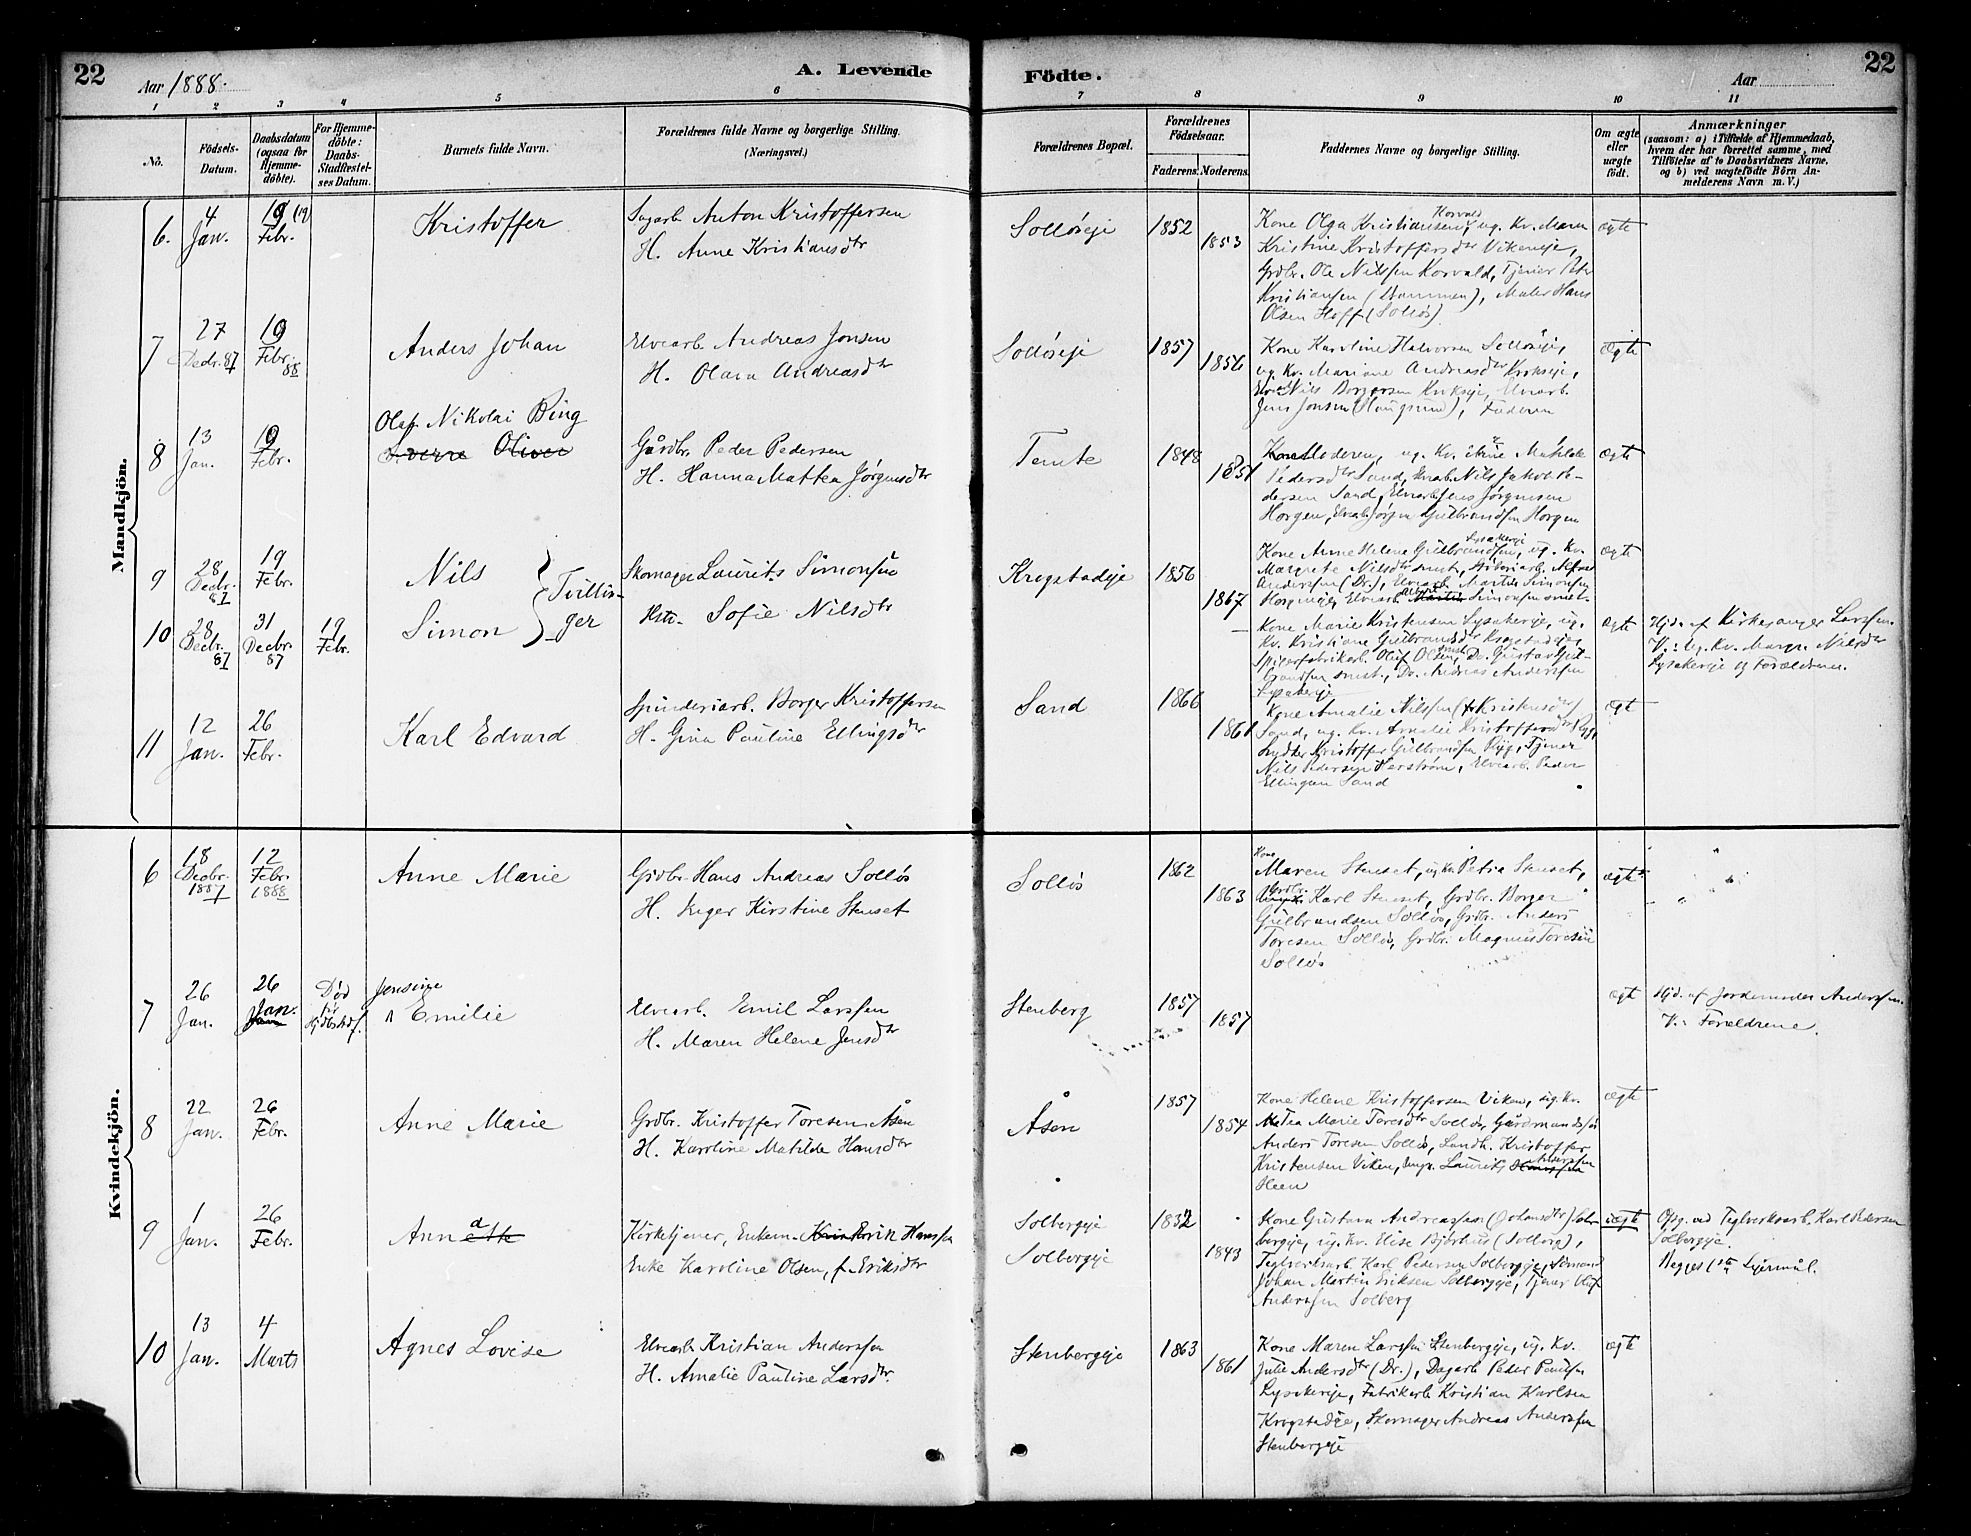 22
Aar 1888.
A. Levende
Födte.
Aar
22
1 2 3 4 5 6 7 8 9 10 11
No.
Födsels-Datum.
Daabsdatum (ogsaa for Hjemme-döbte).
For Hjemme-döbte: Daabs-Stadfestel-ses Datum.
Barnets fulde Navn.
Forældrenes fulde Navne og borgerlige Stilling. (Næringsvei.)
Forældrenes Bopæl.
Forældrenes Födselsaar.
Faderens. Moderens.
Faddernes Navne og borgerlige Stilling.
Om ægte eller uægte födt.
Anmærkninger
(saasom: a) i Tilfælde af Hjemmedaab, hvem der har forrettet samme, med Tilföielse af to Daabsvidners Navne, og b) ved uægtefödte Börn An-melderens Navn m. V.)
Mandkjön.
6. 4 Jan. 19 Febr. Kristoffer
Sagarb. Anton Kristoffersen
H. Anne Kristiansdtr
Solløseje 1852 1853
Kone Olga Kristiansen Korvald, ug. Kv. Maren
Kristine Kristoffersdtr Vikeneje,
Grdbr. Ole Nilssen Korvald, Tjener Peter
Kristiansen (Drammen), Maler Hans
Olsen Hoff (Solløs)
ægte
7 27 Decbr. 87 19 Febr. 88 Anders Johan
Elvearb. Andreas Jonsen
H. Olava Andreasdtr
Solløseje 1857 1856
Kone Karoline Halvorsen Solløseje,
ug. Kv. Mariane Andreasdtr Krokseje,
Nils Borgersen Krokseje, Elvearb.
Jens Jonsen (Haugsund), Faderen
Ægte
8 13 Jan. 19 Febr. Olaf Nikolai Bing
Sverre Oliver
Gårdbr. Peder Pedersen
H. Hanna Mathea Jørgensdtr
Temte 1848 1851
Moderen, ug. Kv. Matilde
Pedersdtr Sand, Nils Jakob Pe-
dersen Sand, Elvearb. Jens Jørgensen
Horgen, Elvearb. Jørgen Gulbrandsen Horgen
ægte
9 28 Decbr. 87 19 Febr. Nils
Tvillin-
ger
Skomager Laurits Simonsen
Hstr. Sofie Nilsdtr
Krogstadeje 1856 1867
Kone Anne Helene Gulbrandsen, Lysakereje ug. Kv.
Margrete Nilsdtr smst., Alfred
Anderssen (Dr.), Elvearb. Martin Simonsen
Horgeneje, Elvearb. Simonsen smst.
ægte
10 28 Decbr. 87 31 Decbr. 87 19 Febr. Simon
Kone Marie Kristensen Lysakereje, ug.
Kv. Kristiane Gulbrandsdtr Krogstadeje,
Spigerfabrikarb. Oluf Olsen smst., Do. Gustav Gul-
brandsen smst., Do. Andreas Anderssen
Lysakereje
ægte
Hjd. af Kirkesanger Larssen.
V.: ug. Kv. Margr. Nilsdtr
Lysakereje og Forældrene.
11 12 Jan. 26 Febr. Karl Edvard
Spinderiarb. Borger Kristoffersen
H. Gina Pauline Ellingsdtr
Sand 1866 1861
Kone Amalie Nilssen (Kristensdtr)
Sand, ug. Kv. Amalie Kristoffersdtr Ryg,
Kristoffer Gulbrandsen Ryg, Tjener
Nils Pedersen Verstrøm, Elvearb. Peder
Ellingsen Sand
ægte
Kvindekjön.
6 18 Decbr. 1887 12 Febr. 1888 Anne Marie
Grdbr. Hans Andreas Solløs
H. Inger Kirstine Stenset
Solløs 1862 1863
Kone
Maren Stenset, ug. Kv. Petra Stenset,
Grdbr. Karl Stenset, Grdbr. Borger
Gulbrandsen Solløs, Grdbr. Anders
Toresen Solløs, Grdbr. Magnus Toresen
Solløs
ægte
7 26 Jan. 26 Jan. Død før Hjdbstadf. Jensine
Emilie
Elvearb. Emil Larssen
H. Maren Helene Jensdtr
Stenberg 1857 1857
ægte
Hjd. af Jordemoder Anderssen.
V.: Forældrene.
8 22 Jan. 26 Febr. Anne Marie
Grdbr. Kristoffer Toresen Åsen
H. Karoline Matilde Hansdtr
Åsen 1857 1854
Kone Helene Kristoffersen Viken, ug. Kv.
Tea Marie Toresdtr Solløs, Gårdmandssøn
Anders Toresen Solløs, Landh. Kristoffer
Kristensen Viken, Ungk. Laurits Anderssen
Heen
ægte
9 1 Jan. 26 Febr. Anna
Kirketjener, Enkem. Erik Hanssen
Enke Karoline Olsen, f. Eriksdtr
Solbergeje 1832
Solbergeje 1843
Kone Gustava Andreassen (Johansdtr) Sol-
bergeje, ug. Kv. Elise Bjørhus (Solberg),
Teglverksarb. Karl Pedersen Solbergeje, Sømand
Johan Martin Eriksen Solbergeje, Tjener Oluf
Anderssen Solberg
uægte
Opg. ved Teglverksarb. Karl Pedersen
Solbergeje.
Begges 1ste Lejermål.
10 13 Jan. 4 Marts Agnes Lovise
Elvearb. Kristian Anderssen
H. Amalie Pauline Larsdtr.
Stenbergeje 1863 1861
Kone Maren Larssen Stenbergeje, ug. Kv.
Julie Andersdtr (Dr.), Dagarb. Peder Paulsen
Lysakereje, Fabrikarb. Kristian Karlsen
Krogstadeje, Skomager Andreas Anderssen
Stenbergeje
ægte